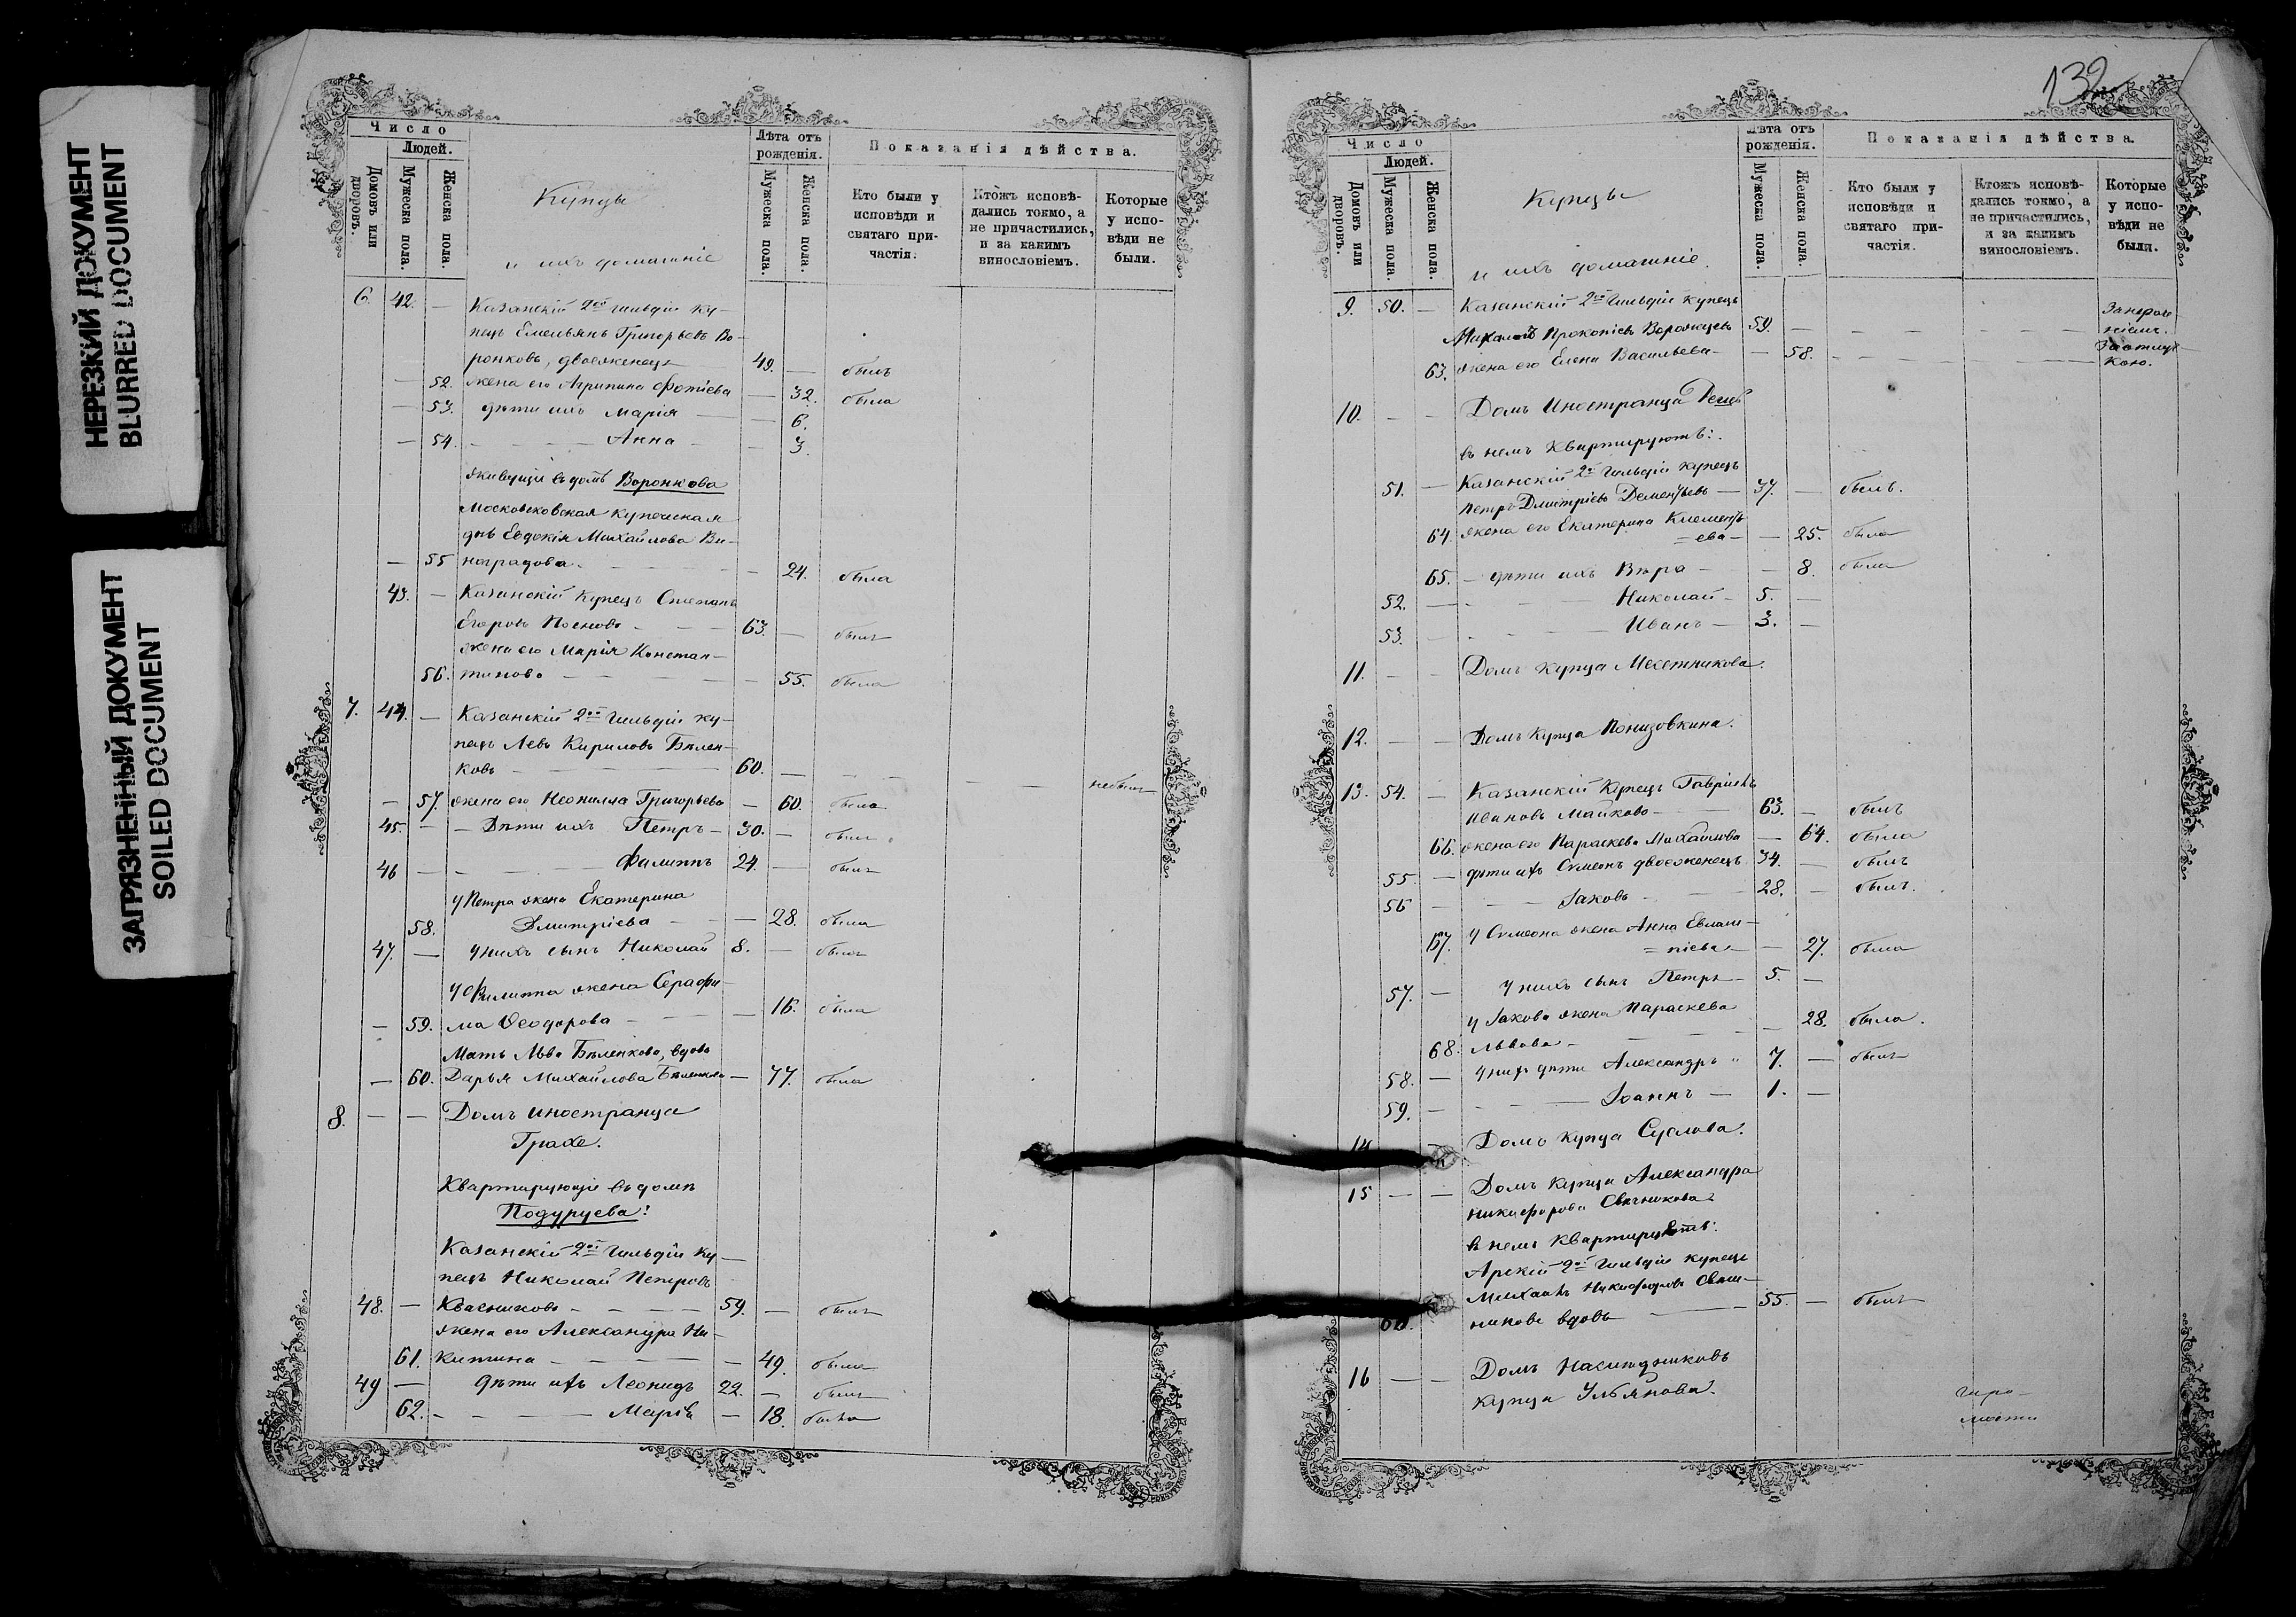 НЕРЕЗКИЙ ДОКУМЕНТ
BLURRED DOCUMENT
ЗАГРЯЗНЕННЫЙ ДОКУМЕНТ
SOILED DOCUMENT
Число
Людей.
Домовъ или дворовъ.
Мужеска пола.
Женска пола.
Купцы
и ихъ домашніе
Лѣта отъ рожденія.
Мужеска пола.
Женска пола.
Показанія дѣйства.
Кто были у исповѣди и святаго причастія.
Ктожъ исповѣдались токмо, а не причастились, и за какимъ винословіемъ.
Которые у исповѣди не были.
6. 42. — Казанскій 2ой гильдіи ку-
пецъ Емельянъ Григорьевъ Во-
ронковъ, двоеженецъ 49. — былъ
— 52. жена его Агрипина Фотіева — 32. была
— 53. дѣти ихъ Марія — 6.
— 54. — Анна — 3.
живущіе въ домѣ Воронкова
Московская купеческая
дчь Евдокія Михайлова Ви-
— 55 ноградова — 24. была
43. — Казанскій купецъ Степанъ
Егоровъ — 63. — былъ
жена его Марія Констан-
56. тинова — 55. была
7. 44. — Казанскій 2ой гильдіи ку-
пецъ Левъ Кириловъ Бѣлен-
ковъ — 60. — небылъ
— 57. жена его Неонилла Григорьева — 60. была
45. — Дѣти ихъ Петръ — 30. — былъ
46 — Филиппъ 24. — былъ
у Петра жена Екатерина
58. Дмитріева — 28. была
47. — у нихъ сынъ Николай 8. — былъ
у Филиппа жена Серафи-
— 59. ма Ѳеодорова — 16. была
Мать Льва Бѣленкова, вдова
— 60. Дарья Михайлова Бѣленкова — 77. была
8. — — Домъ Иностранца
Грахе.
Квартирующіе въ домѣ
Подуруева:
Казанскій 2ой гильдіи ку-
пецъ Николай Петровъ
48. — Квасниковъ — 59. — былъ
жена его Александра Ни-
61. китина — 49. была
49 — дѣти ихъ Леонидъ 22. — былъ
62. — Марія — 18. была
132
Число
Людей.
Домовъ или дворовъ.
Мужеска пола.
Женска пола.
Купцы
и ихъ домашніе.
Лѣта отъ рожденія.
Мужеска пола.
Женска пола.
Показанія дѣйства.
Кто были у исповѣди и святаго причастія.
Ктожъ исповѣдались токмо, а не причастились, и за какимъ винословіемъ.
Которые у исповѣди не были.
9. 50. — Казанскій 2ой гильдіи купецъ
Михаилъ Прокопіевъ Ворожцовъ 59. —
63. жена его Елена Васильева — 58. — За отлуч-
кою.
10. — — Домъ Иностранца
въ немъ Квартируютъ:
51. — Казанскій 2й гильдіи купецъ
Петръ Дмитріевъ Дементьевъ — 37. — былъ.
64. жена его Екатерина Клементь
=ева — 25. была
65. — дѣти ихъ Вѣра — 8. была
52. — Николай — 5. —
53. — Иванъ — 3. —
11. — — Домъ купца Месетникова.
12. — — Домъ купца Понизовкина.
13. 54. — Казанскій Купецъ Гавріилъ
Ивановъ Майковъ — 63. — былъ
66. жена его Параскева Михайлова — 64. была
55. — дѣти ихъ Симеонъ двоеженецъ 34. — былъ
56 — Іаковъ — 28. — былъ.
67. у Симеона жена Анна Евлам-
=піева — 27. была
57. — у нихъ сынъ Петръ — 5. —
у Іакова жена Параскева
68. Львова — 28. была.
58. — у нихъ дѣти Александръ 7. — былъ
59. — Іоаннъ — 1. —
14 — Домъ купца Суслова.
15 — — Домъ Купца Александра
Никифорова Свѣчникова
въ немъ Квартируетъ:
Арскій 2ой гильдіи купецъ
Михаилъ Никифоровъ Свѣч-
60. никовъ вдовъ — 55. — былъ
16 — — Домъ Наслѣдниковъ
купца Ульянова.